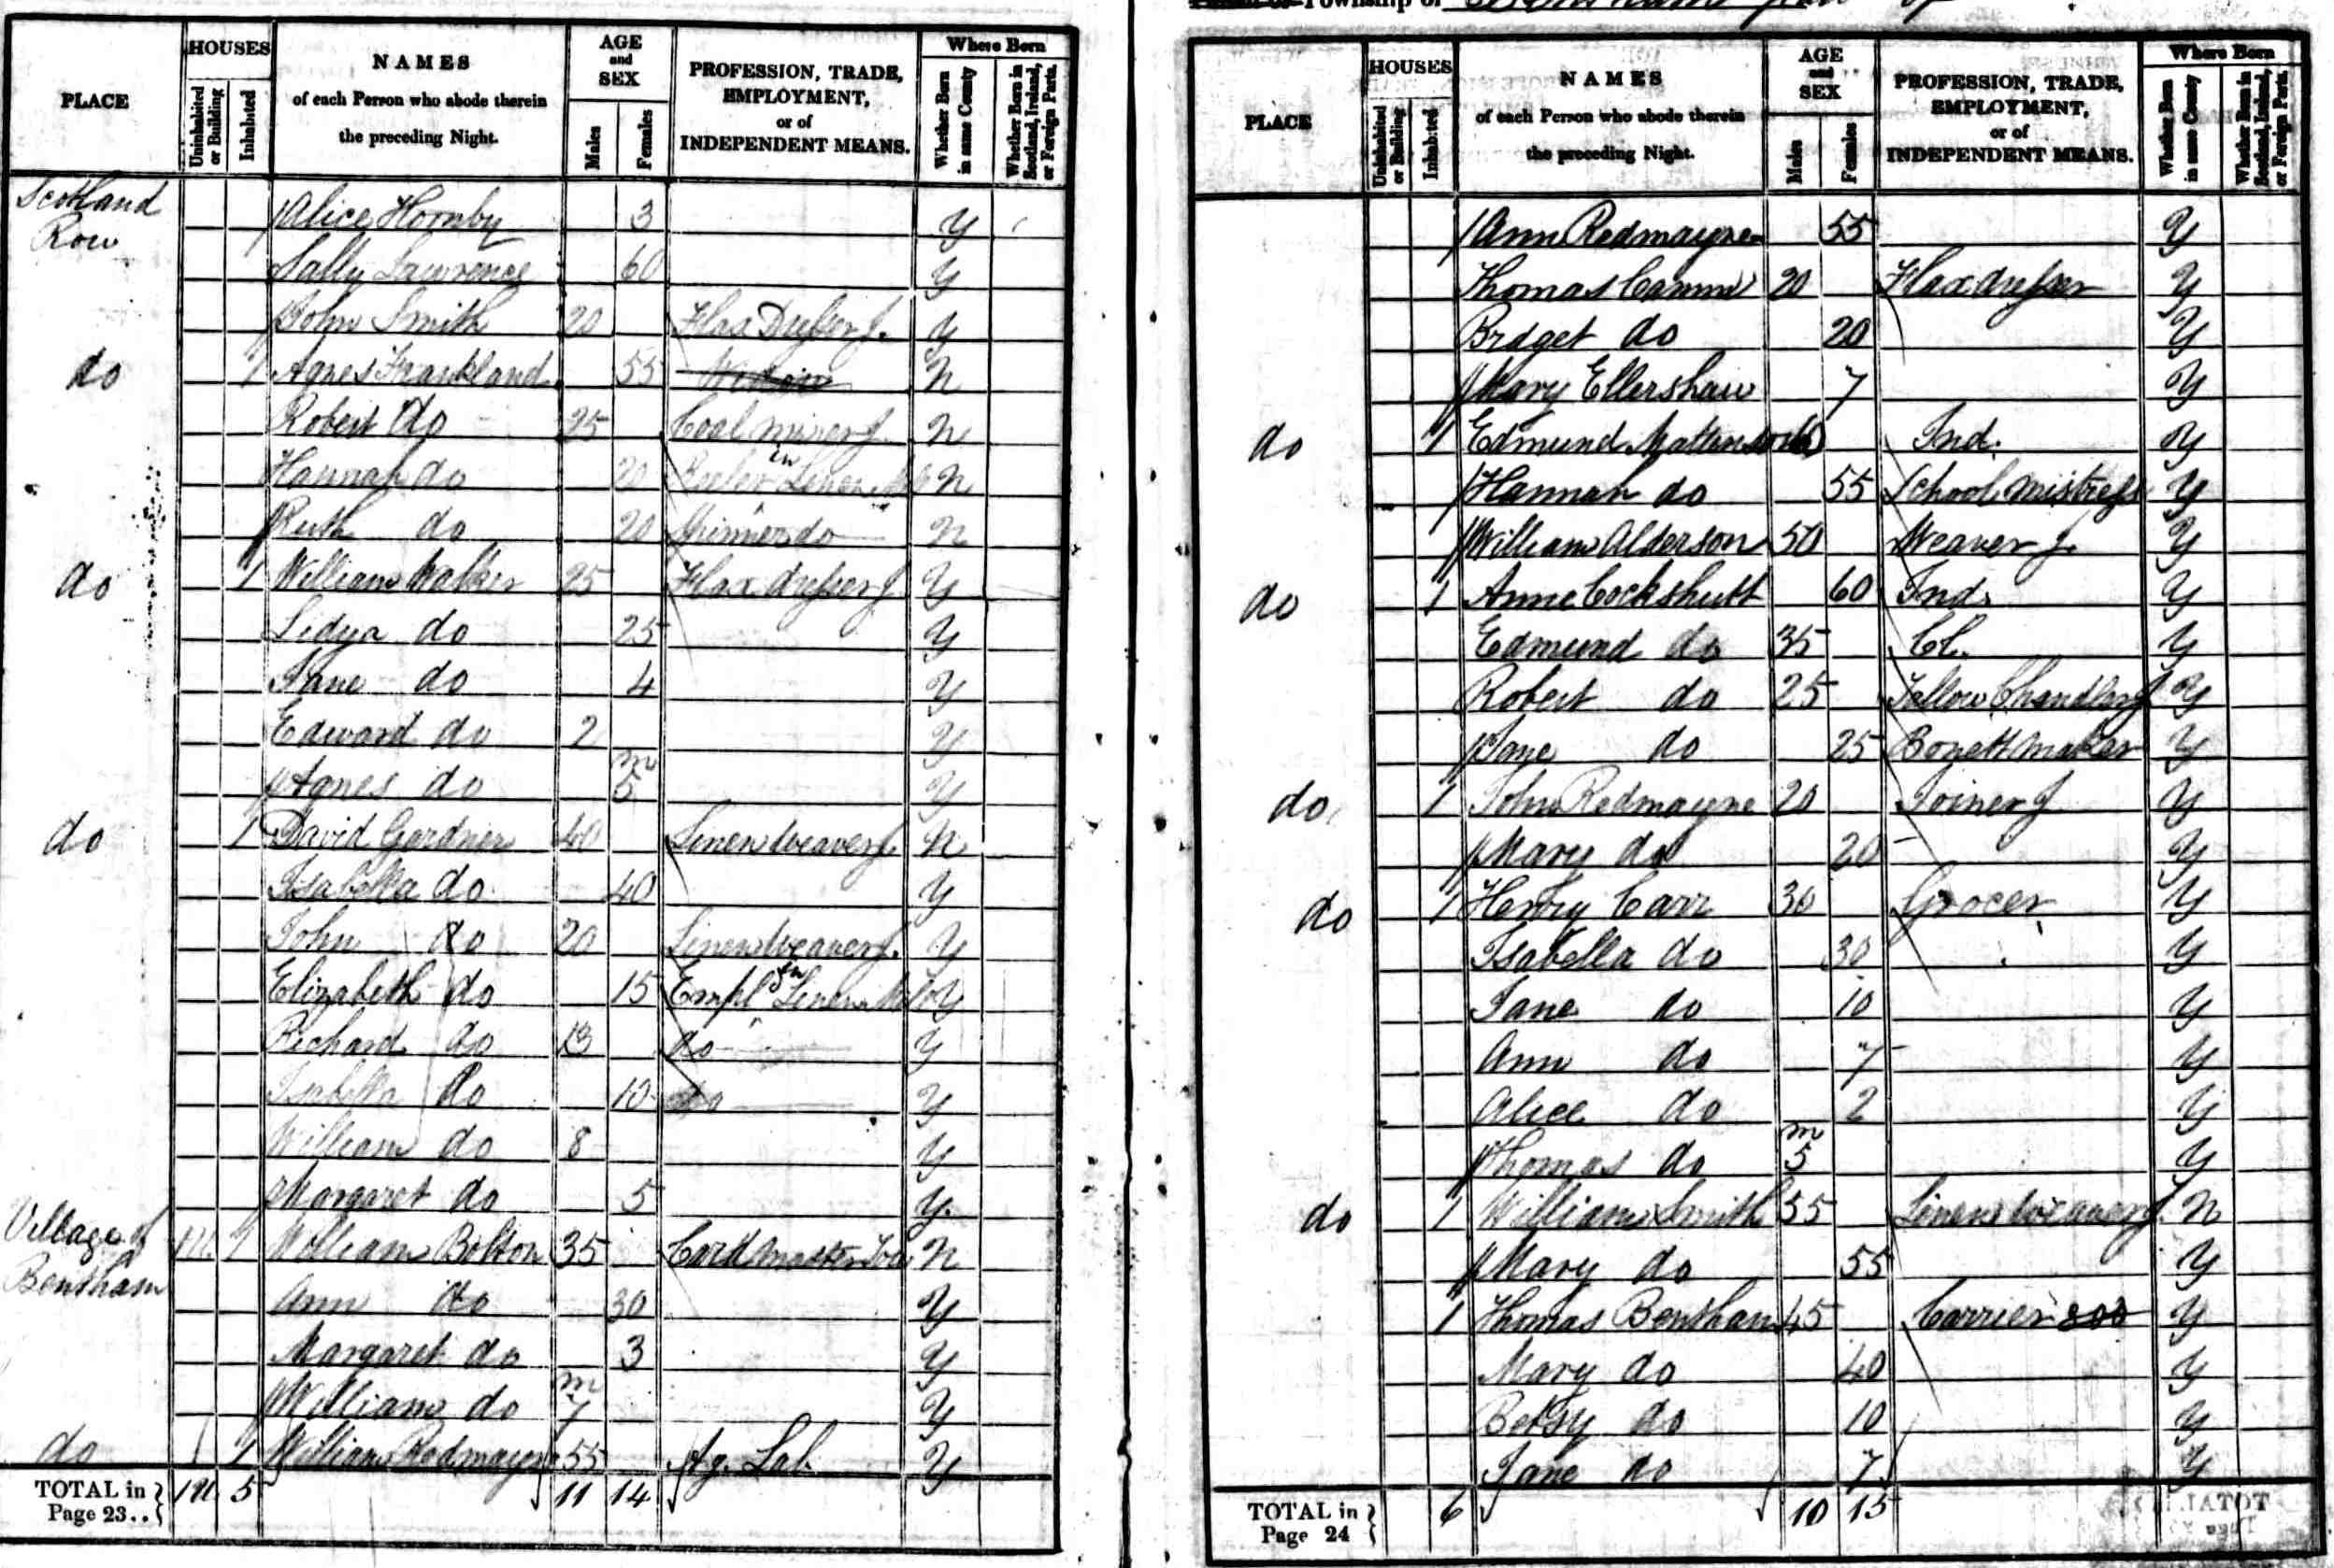 Township of
PLACE
HOUSES
Uninhabited or Building
Inhabited
NAMES
of each Person who abode therein
the preceding Night.
AGE
and
SEX
Males
Females
PROFESSION, TRADE,
EMPLOYMENT,
or of
INDEPENDENT MEANS.
Where Born
Whether Born in same County
Whether Born in Scotland, Ireland, or Foreign Parts.
Scotland
Row
Alice Hornby 3 Y
Sally Lawrence 60 Y
John Smith 20 Flax Dresser J. Y
do 1 Agnes Frankland 55 Widow N
Robert do 25 Coal miner J. N
Hannah do 20 Reeler in Linen Mill N
Ruth do 20 Spinner do N
do 1 William Walker 25 Flax dresser J Y
Lidya do 25 Y
Jane do 4 Y
Edward do 2 Y
Agnes do 5 m Y
do 1 David Gardner 40 Linen Weaver J. N
Isabella do 40 Y
John do 20 Linen Weaver J. Y
Elizabeth do 15 Empl in Linen Mill Y
Richard do 13 do Y
Isabella do 10 do Y
William do 8 Y
Margaret do 5 Y.
Village of
Bentham
1 William Bolton 35 Card Master N
Ann do 30 Y
Margaret do 3 Y
William do 7 m Y
do 1 William Redmayne 55 Ag. Lab. Y
TOTAL in
Page 23..
5 11 14
PLACE
HOUSES
Uninhabited or Building
Inhabited
NAMES
of each Person who abode therein
the preceding Night.
AGE
and
SEX
Males
Females
PROFESSION, TRADE,
EMPLOYMENT,
or of
INDEPENDENT MEANS.
Where Born
Whether Born in same County
Whether Born in Scotland, Ireland, or Foreign Parts.
Ann Redmayne 55 Y
Thomas 20 Flax dresser Y
Bridget do 20 Y
Mary Ellershaw 7 Y
do 1 Edmund Mattinson Ind. Y
Hannah do 55 School Mistress Y
William Alderson 50 Weaver J. Y
do 1 Anne Cockshutt 60 Ind. Y
Edmund do 35 Cl. Y
Robert do 25 Tallow Chandler J Y
Jane do 25 Bonett Maker Y
do 1 John Redmayne 20 Joiner J Y
Mary do 20 Y
do 1 Henry Carr 30 Grocer Y
Isabella do 30 Y
Jane do 10 Y
Ann do 7 Y
Alice do 2 Y
Thomas do 5 m Y
do 1 William Smith 55 Linen Weaver J. N
Mary do 55 Y
1 Thomas Bentham 45 Carrier Y
Mary do 40 Y
Betsy do 10 Y
Jane do 7 Y
TOTAL in
Page 24
6 10 15